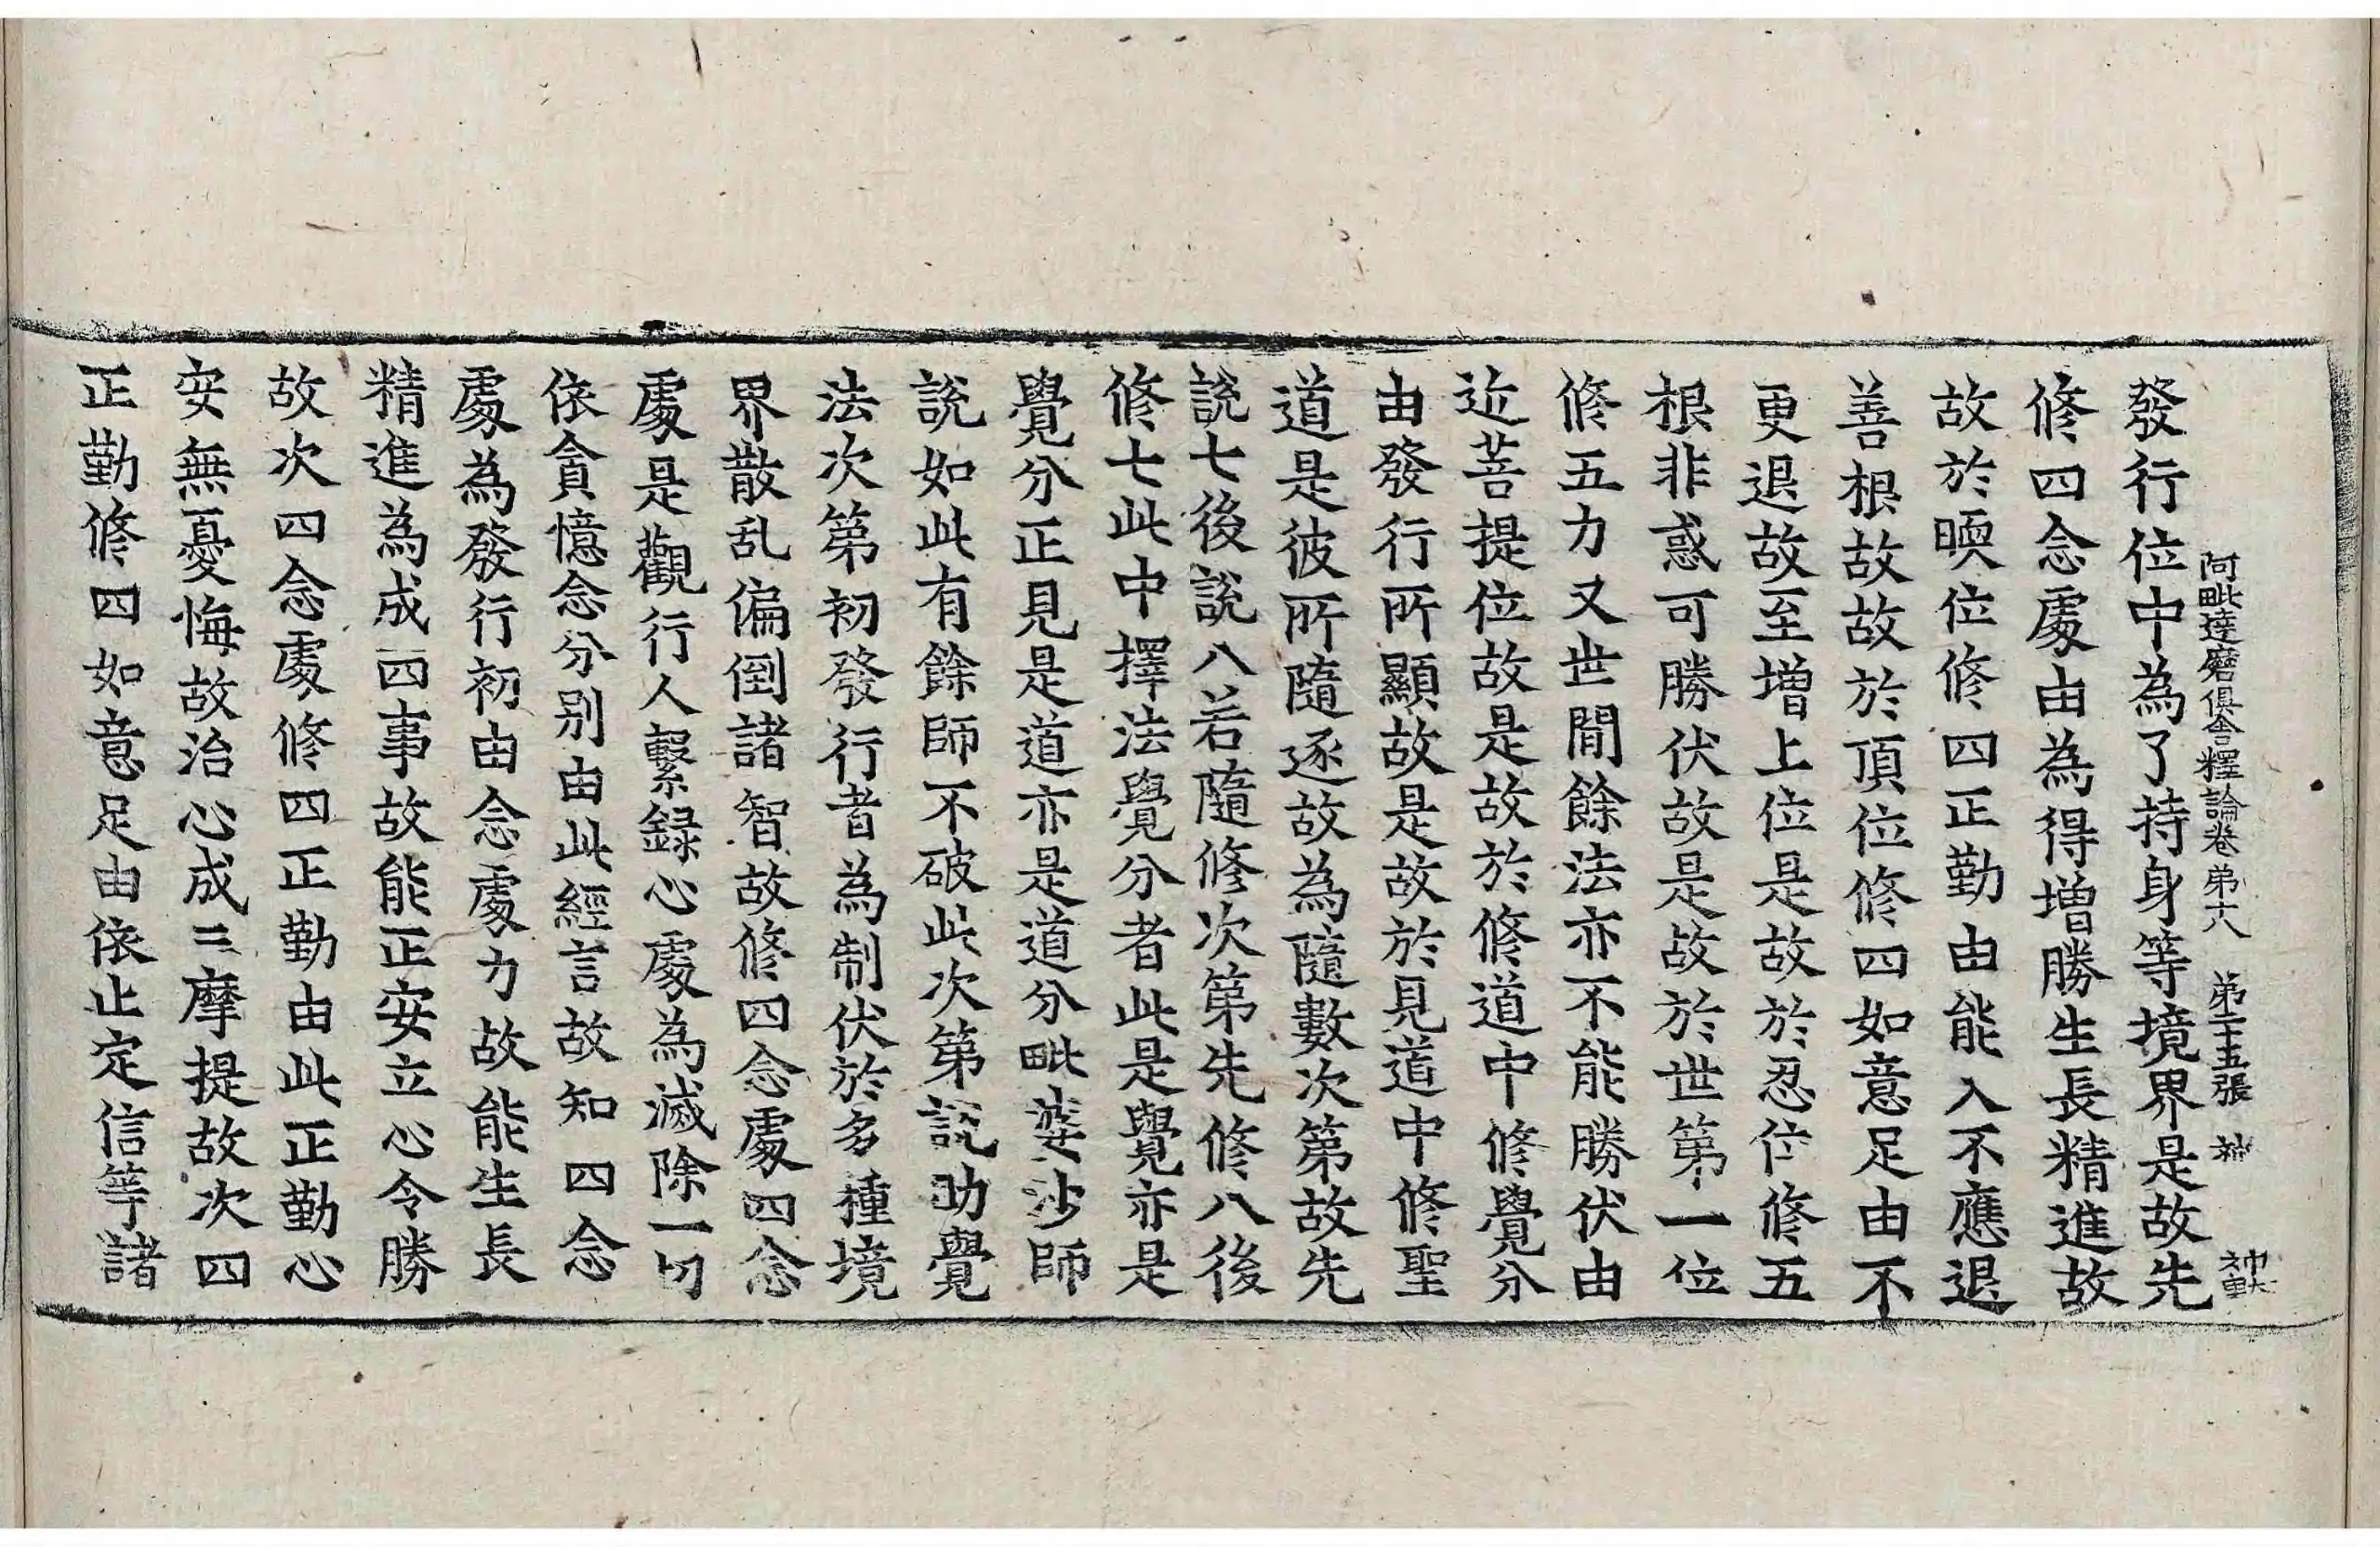 阿毗達磨俱舍釋論卷弟十八　弟二十五張　神
發行位中為了持身等境界是故先
修四念處由為得增勝生長精進故
故於暎位修四正勤由能入不應退
善根故故於頂位修四如意足由不
更退故至增上位是故於忍位修五
根非惑可勝伏故是故於世第一位
修五力又世間餘法亦不能勝伏由
近菩提位故是故於修道中修覺分
由發行所顯故是故於見道中修聖
道是彼所隨逐故為隨數次第故先
說七後說八若隨修次第先修八後
修七此中擇法覺分者此是覺亦是
覺分正見是道亦是道分毗婆沙師
說如此有餘師不破此次第說助覺
法次第初發行者為制伏於多種境
界散乱偏倒諸智故修四念處四念
處是觀行人繫録心處為滅除一切
依貪憶念分別由此經言故知四念
處為發行初由念處力故能生長
精進為成四事故能正安立心令勝
故次四念處修四正勤由此正勤心
安無憂悔故治心成三摩提故次四
正勤修四如意足由依止定信等諸